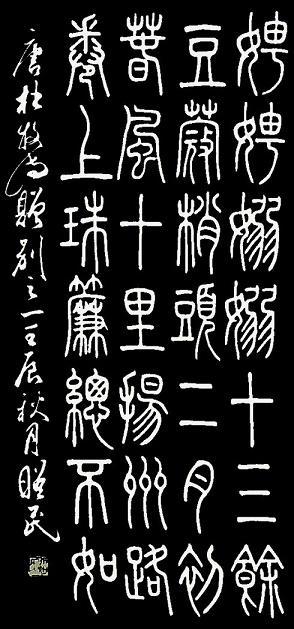 娉娉嫋嫋十三餘
豆蔻梢頭二月初
春風十里揚州路
卷上珠簾總不如
唐杜牧贈別之一壬辰秋月民